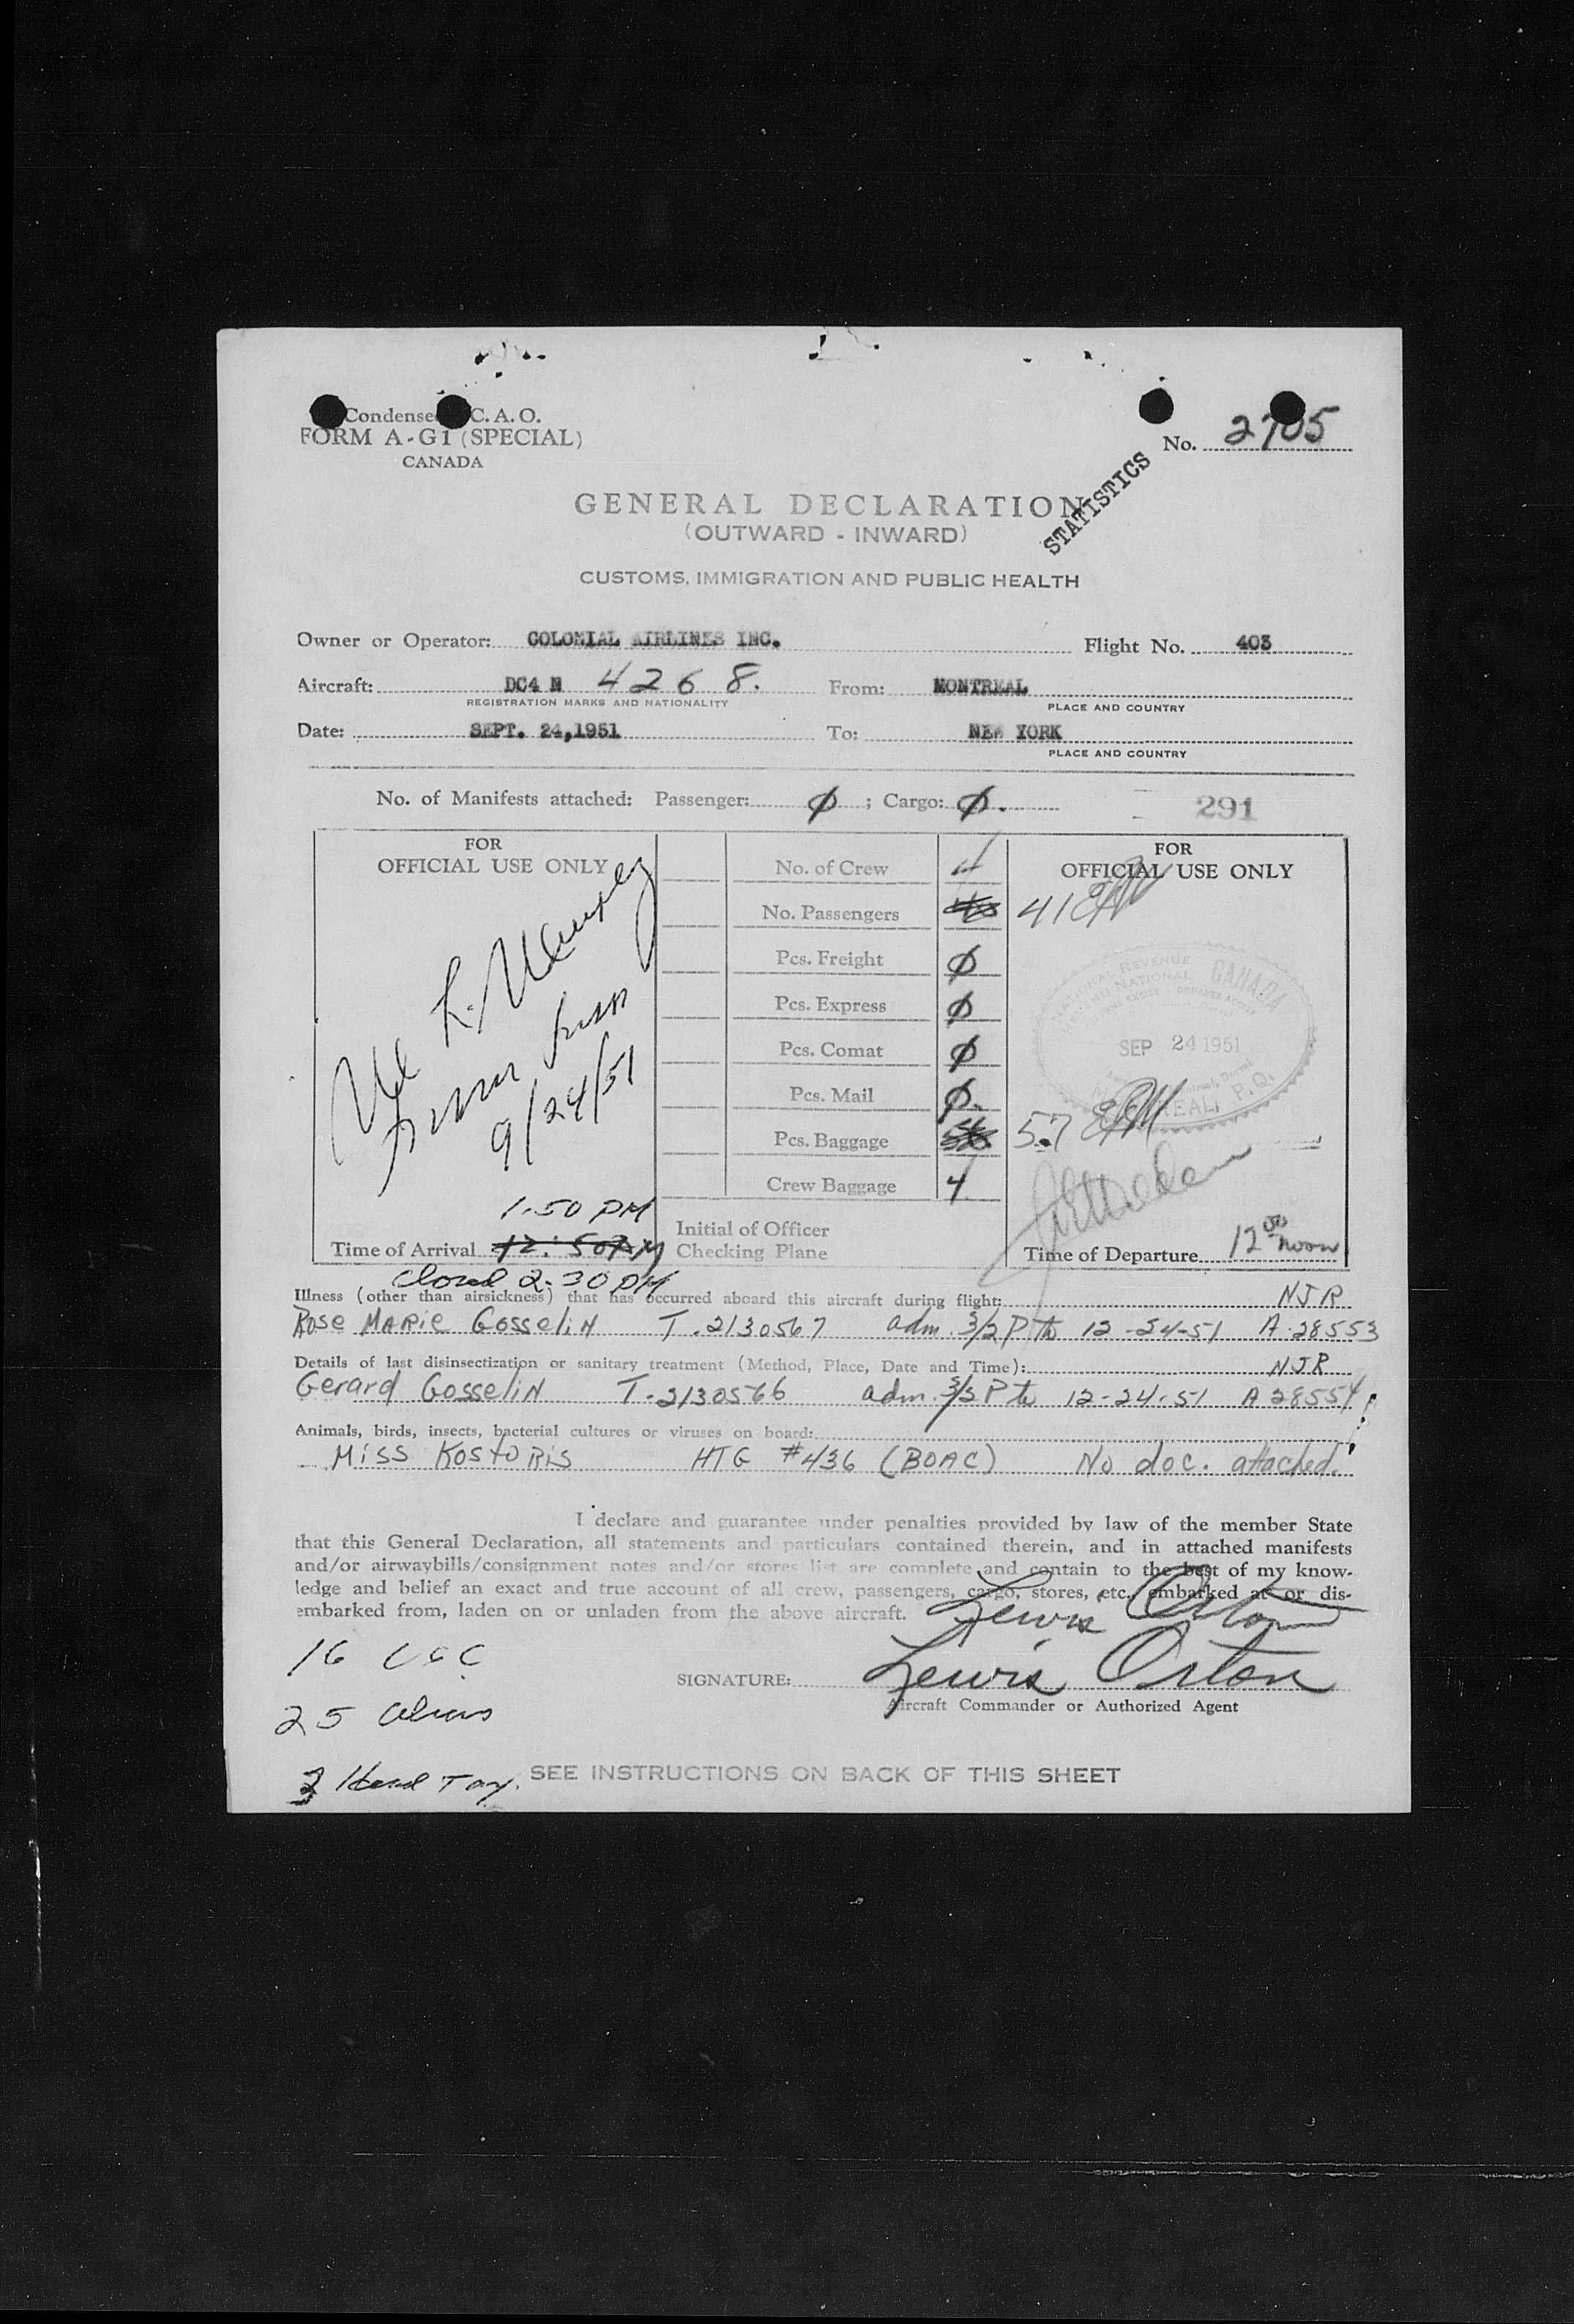 Condense C. A. O.
FORM A-G1 (SPECIAL)
CANADA
No. 2705
STATISTICS
GENERAL DECLARATION
(OUTWARD - INWARD)
CUSTOMS, IMMIGRATION AND PUBLIC HEALTH
Owner or Operator: COLONIAL AIRLINES INC. Flight No. 403
Aircraft: DC4 N 4268. From: MONTREAL
REGISTRATION MARKS AND NATIONALITY PLACE AND COUNTRY
Date: SEPT. 24,1951 To: NEW YORK
PLACE AND COUNTRY
No. of Manifests attached: Passenger: Ø ; Cargo: Ø.
291
FOR
OFFICIAL USE ONLY
9/24/51
1.50 PM
Time of Arrival 12:50 PM
Closed 2-30 PM
No. of Crew 4
No. Passengers
Pcs. Freight Ø
Pcs. Express Ø
Pcs. Comat Ø
Pcs. Mail Ø.
Pcs. Baggage
Crew Baggage 4
Initial of Officer
Checking Plane
FOR
OFFICIAL USE ONLY
41
REVENUE
NATIONAL CANADA
SEP 24 1951
P.Q.
57
Time of Departure 12 00 noon
Illness (other than airsickness) that has occurred aboard this aircraft during flight: NJR
Rose Marie Gosselin T.2130567 adm. 3/2 P to 12-24-51 A-28553
Details of last disinsectization or sanitary treatment (Method, Place, Date and Time): NJR
Gerard Gosselin T-2130566 adm. 3/2 P to 12-24-51 A 28554
Animals, birds, insects, bacterial cultures or viruses on board:
Miss Kostoris HTG #436 (BOAC) No doc. attached.
I declare and guarantee under penalties provided by law of the member State
that this General Declaration, all statements and particulars contained therein, and in attached manifests
and/or airwaybills/consignment notes and/or stores list are complete and contain to the best of my know-
ledge and belief an exact and true account of all crew, passengers, cargo, stores, etc. embarked at or dis-
embarked from, laden on or unladen from the above aircraft.
Lewis Orton
16 USC
SIGNATURE: Lewis Orton
Aircraft Commander or Authorized Agent
25 Aliens
3 Head Tax.
SEE INSTRUCTIONS ON BACK OF THIS SHEET